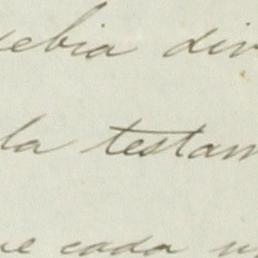 debia div
la testam
ue cada u